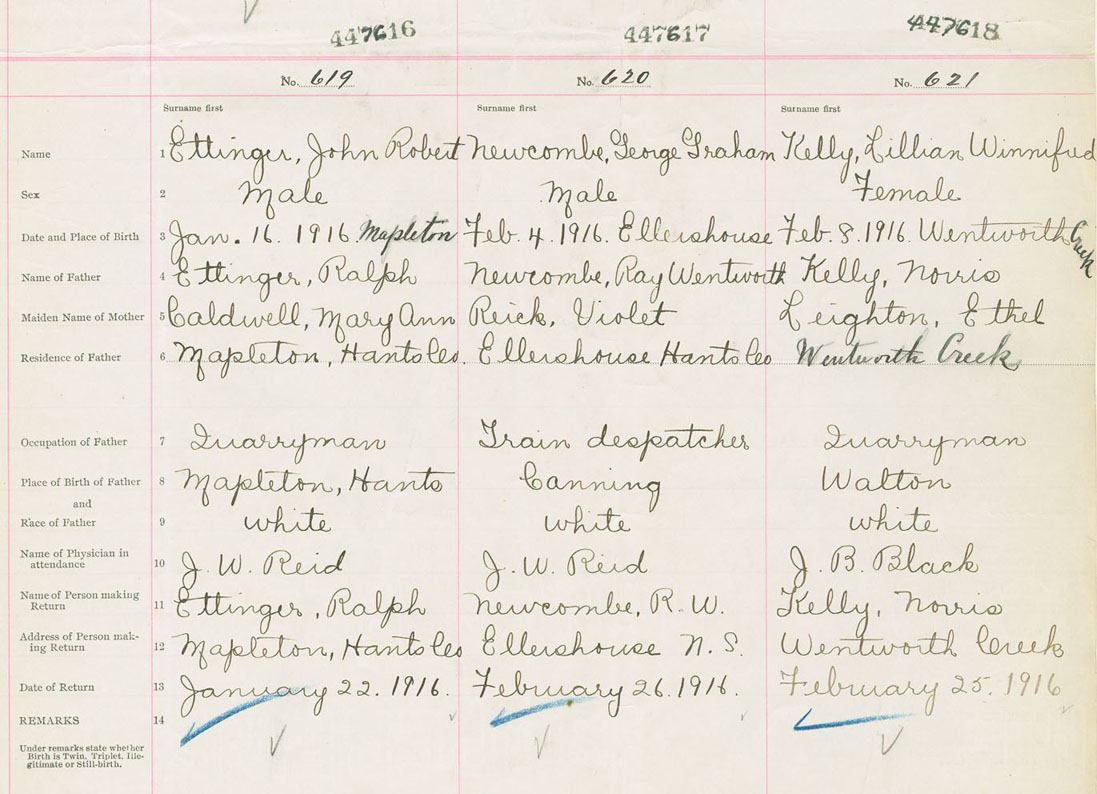 447616 447617 447618
No. 619 No. 620 No. 621
Surname first Surname first Surname first
Name 1 Ettinger, John Robert Newcombe, George Graham Kelly, Lillian Winnifred
Sex 2 Male Male Female
Date and Place of Birth 3 Jan. 16. 1916 Mapleton Feb. 4. 1916. Ellershouse Feb. 8. 1916. Wentworth Creek
Name of Father 4 Ettinger, Ralph Newcombe, Ray Wentworth Kelly, Norris
Maiden Name of Mother 5 Caldwell, Mary Ann Reick, Violet Leighton, Ethel
Residence of Father 6 Mapleton, Hants Co. Ellershouse Hants Co Wentworth Creek
Occupation of Father 7 Quarryman Train despatcher Quarryman
Place of Birth of Father 8 Mapleton, Hants Canning Walton
and
Race of Father 9 white white white
Name of Physician in
attendance 10 J. W. Reid J. W. Reid J. B. Black
Name of Person making
Return 11 Ettinger, Ralph Newcombe, R. W. Kelly, Norris
Address of Person mak-
ing Return 12 Mapleton, Hants Co Ellershouse N. S. Wentworth Creek
Date of Return 13 January 22. 1916. February 26. 1916. February 25. 1916
REMARKS 14
Under remarks state whether
Birth is Twin, Triplet, Ille-
gitimate or Still-birth.